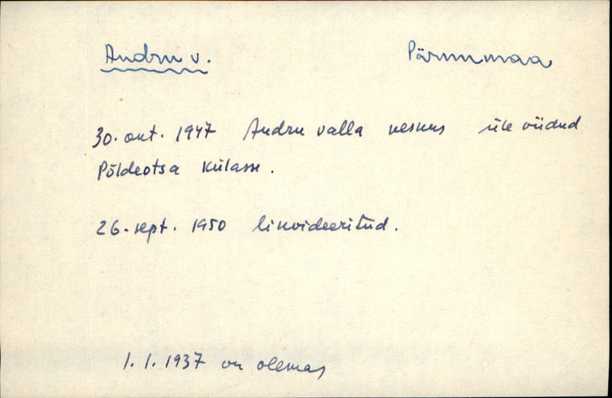 Andru v. Pärnumaa
30. okt. 1947 Andru valla keskus üle viidud
Põldeotsa külasse.
26. sept. 1950 likvideeritud.
1.1.1937 on olemas